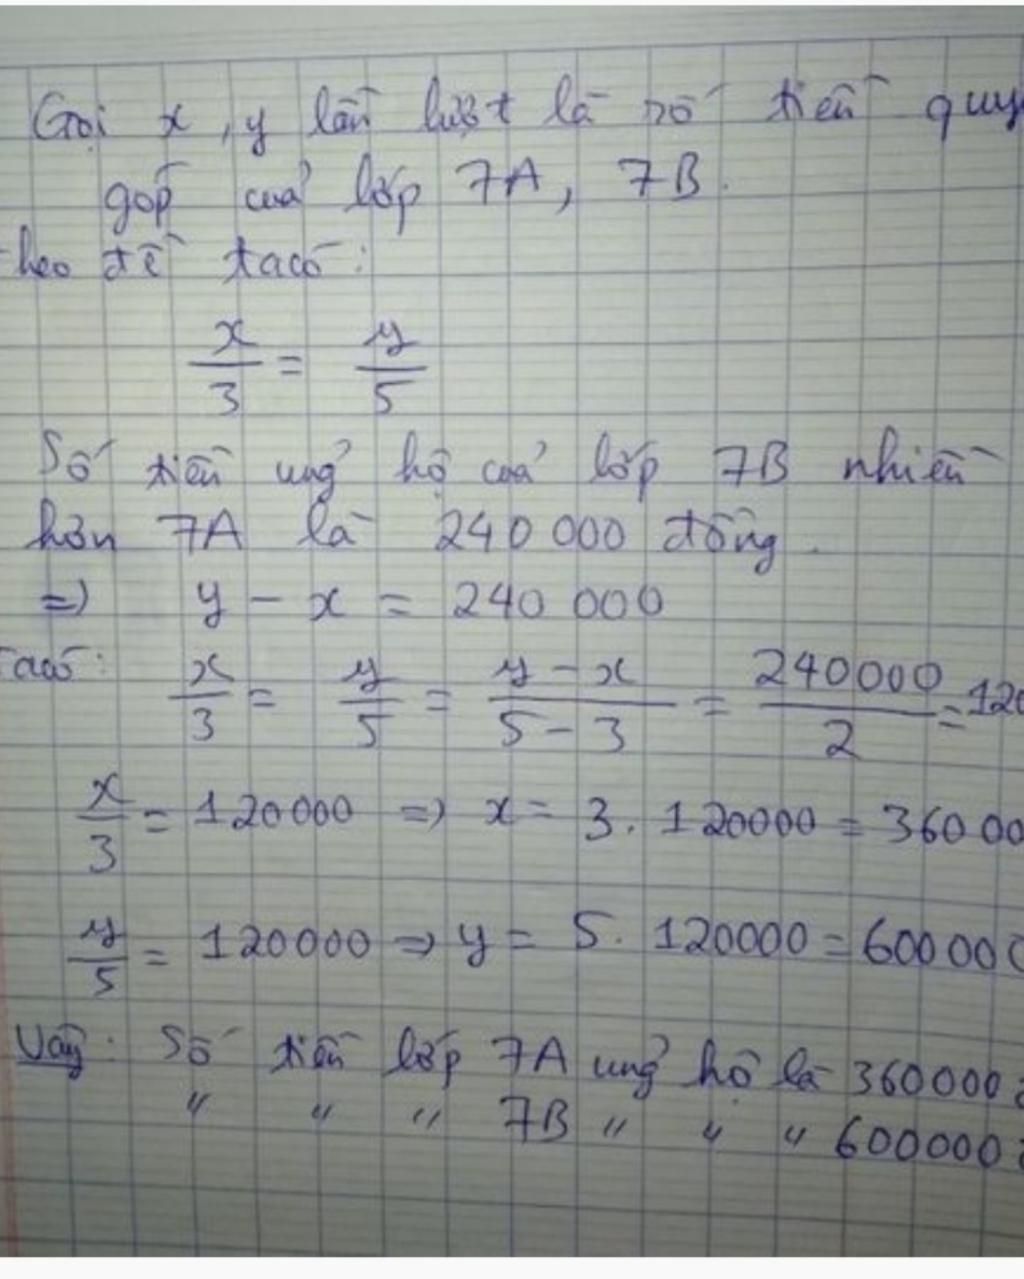 Gọi x, y lần lượt là số tiền quy
góp của lớp 7A, 7B.
theo đề ta có:
x/3 = y/5
Số tiền ủng hộ của lớp 7B nhiều
hơn 7A là 240 000 đồng.
=> y - x = 240 000
Ta có: x/3 = y/5 = y - x/5 - 3 = 240000/2 = 120
x/3 = 120000 => x = 3. 120000 = 36000
y/5 = 120000 => y = 5. 120000 = 600000
Vậy: Số tiền lớp 7A ủng hộ là 360000đ
" " " 7B " " " 600000đ